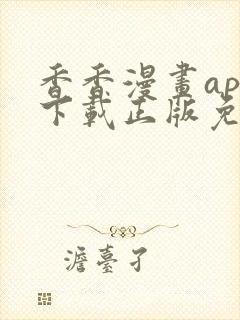 香香漫畫ap
下載正版免
澹臺孑